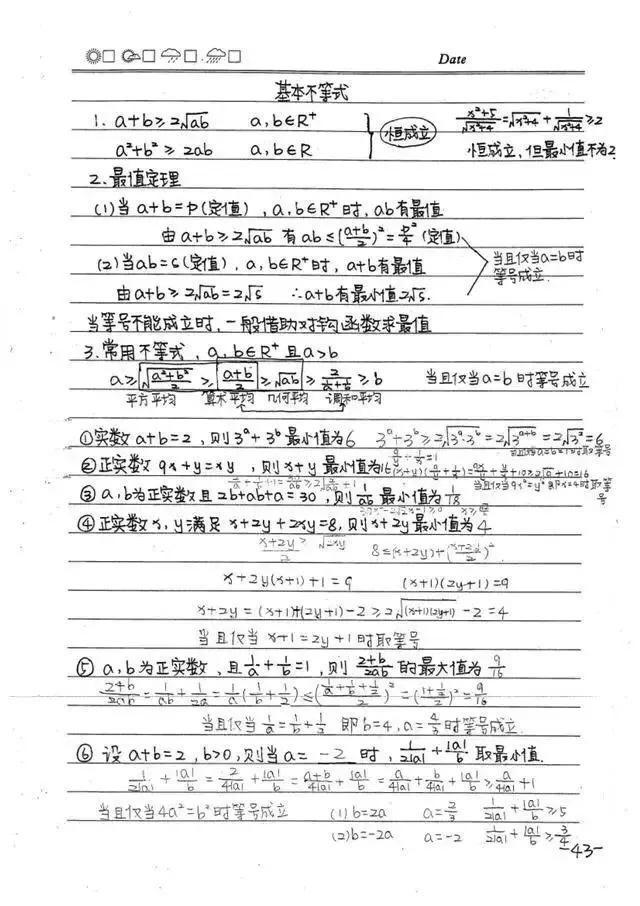 Date
基本不等式
1. a+b≥2√ab a,b∈R⁺ 恒成立 (x²+5)/√(x²+4)=√(x²+4)+1/√(x²+4)≥2
a²+b²≥2ab a,b∈R 恒成立,但最小值不为2.
2.最值定理
(1)当a+b=P(定值),a,b∈R⁺时,ab有最值
由a+b≥2√ab 有ab≤((a+b)/2)²=P²/4(定值)
当且仅当a=b时等号成立.
(2)当ab=S(定值),a,b∈R⁺时,a+b有最值
由a+b≥2√ab=2√S ∴a+b有最小值2√S.
当等号不能成立时,一般借助对钩函数求最值
3.常用不等式,a,b∈R⁺且a>b
a≥√((a²+b²)/2)≥(a+b)/2≥√ab≥2/(1/a+1/b)≥b 当且仅当a=b时等号成立
平方平均 算术平均 几何平均 调和平均
①实数a+b=2,则3ᵃ+3ᵇ最小值为6 3ᵃ+3ᵇ≥2√(3ᵃ·3ᵇ)=2√(3ᵃ⁺ᵇ)=2√3²=6
当且仅当a=b=1时取等号
②正实数9x+y=xy,则x+y最小值为16 9/y+1/x=1
当且仅当9x²=y²即x=4时取等号
③a,b为正实数且2b+ab+a=30,则1/ab最小值为1/18
④正实数x,y满足x+2y+2xy=8,则x+2y最小值为4
(x+2y)/2≥√2xy 8≤(x+2y)+((x+2y)/2)²
x+2y(x+1)+1=9 (x+1)(2y+1)=9
x+2y=(x+1)+(2y+1)-2≥2√((x+1)(2y+1))-2=4
当且仅当x+1=2y+1时取等号
⑤a,b为正实数,且1/a+1/b=1,则(2+b)/2ab的最大值为9/16
(2+b)/2ab=1/ab+1/2a=1/a(1/b+1/2)≤((1/a+1/b+1/2)/2)²=((1+1/2)/2)²=9/16
当且仅当1/a=1/b+1/2 即b=4,a=4/3时等号成立.
⑥设a+b=2,b>0,则当a=-2时,1/2|a|+|a|/b取最小值.
1/2|a|+|a|/b=2/4|a|+|a|/b=(a+b)/4|a|+|a|/b=a/4|a|+b/4|a|+|a|/b≥a/4|a|+1
当且仅当4a²=b²时等号成立 (1)b=2a a=2/3 1/2|a|+|a|/b≥5/4
(2)b=-2a a=-2 1/2|a|+|a|/b≥3/4
-43-